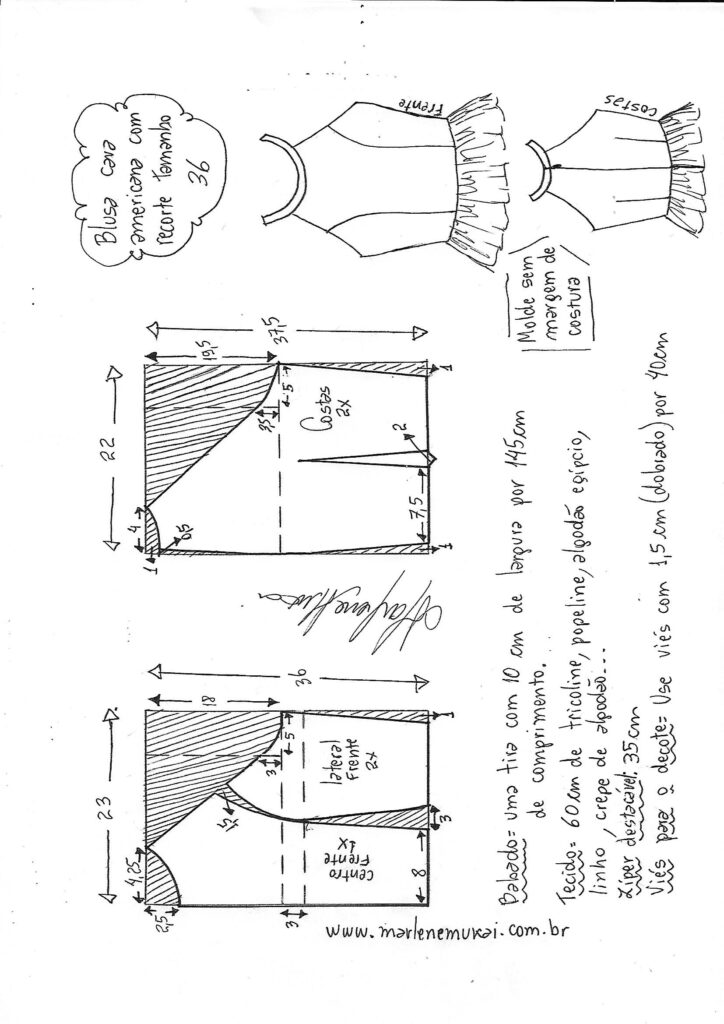 Blusa cava
americana com
recorte tamanho
36
Frente
Costas
Molde sem
margem de
costura
22
4
1
0,5
19,5
37,5
3,5
5
Costas
2X
7,5
2
1
1
23
4,25
2,5
18
36
1,5
3
5
Lateral
Frente
2X
Centro
Frente
1X
3
8
3
1
www.marlenemukai.com.br
Babado= uma tira com 10 cm de largura por 145cm
de comprimento.
Tecido= 60cm de tricoline, popeline, algodão egípcio,
linho, crepe de algodão...
Zíper destacável: 35cm
Viés para o decote= Use viés com 1,5cm (dobrado) por 40cm